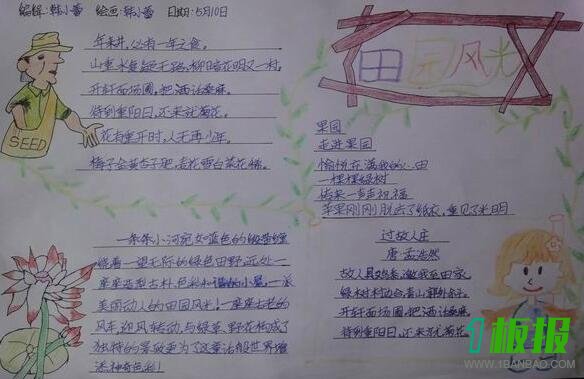 编辑:韩小蕾 绘画:韩小蕾 日期:5月10日
田园风光
山重水复疑无路,柳暗花明又一村,
开轩面场圃,把酒话桑麻。
待到重阳日,还来就菊花。
花有重开时,人无再少年。
梅子金黄杏子肥,麦花雪白菜花稀。
SEED
果园
走进果园
一棵棵绿树
传来一声声祝福
苹果刚刚脱去了纸衣,重见了光明
一条条小河宛如蓝色的缎带缠
绕着一望无际的绿色田野,远处一
座座造型古朴色彩和谐的小屋,一派
美丽动人的田园风光!一座座古老的
风车迎风转动,与绿草野花构成了
独特的景致更为了这童话般世界增
添神奇色彩!
过故人庄
唐·孟浩然
故人具鸡黍,邀我至田家,
绿树村边合,青山郭外斜。
开轩面场圃,把酒话桑麻,
待到重阳日,还来就菊花
1板报
WWW.1BANBAO.COM